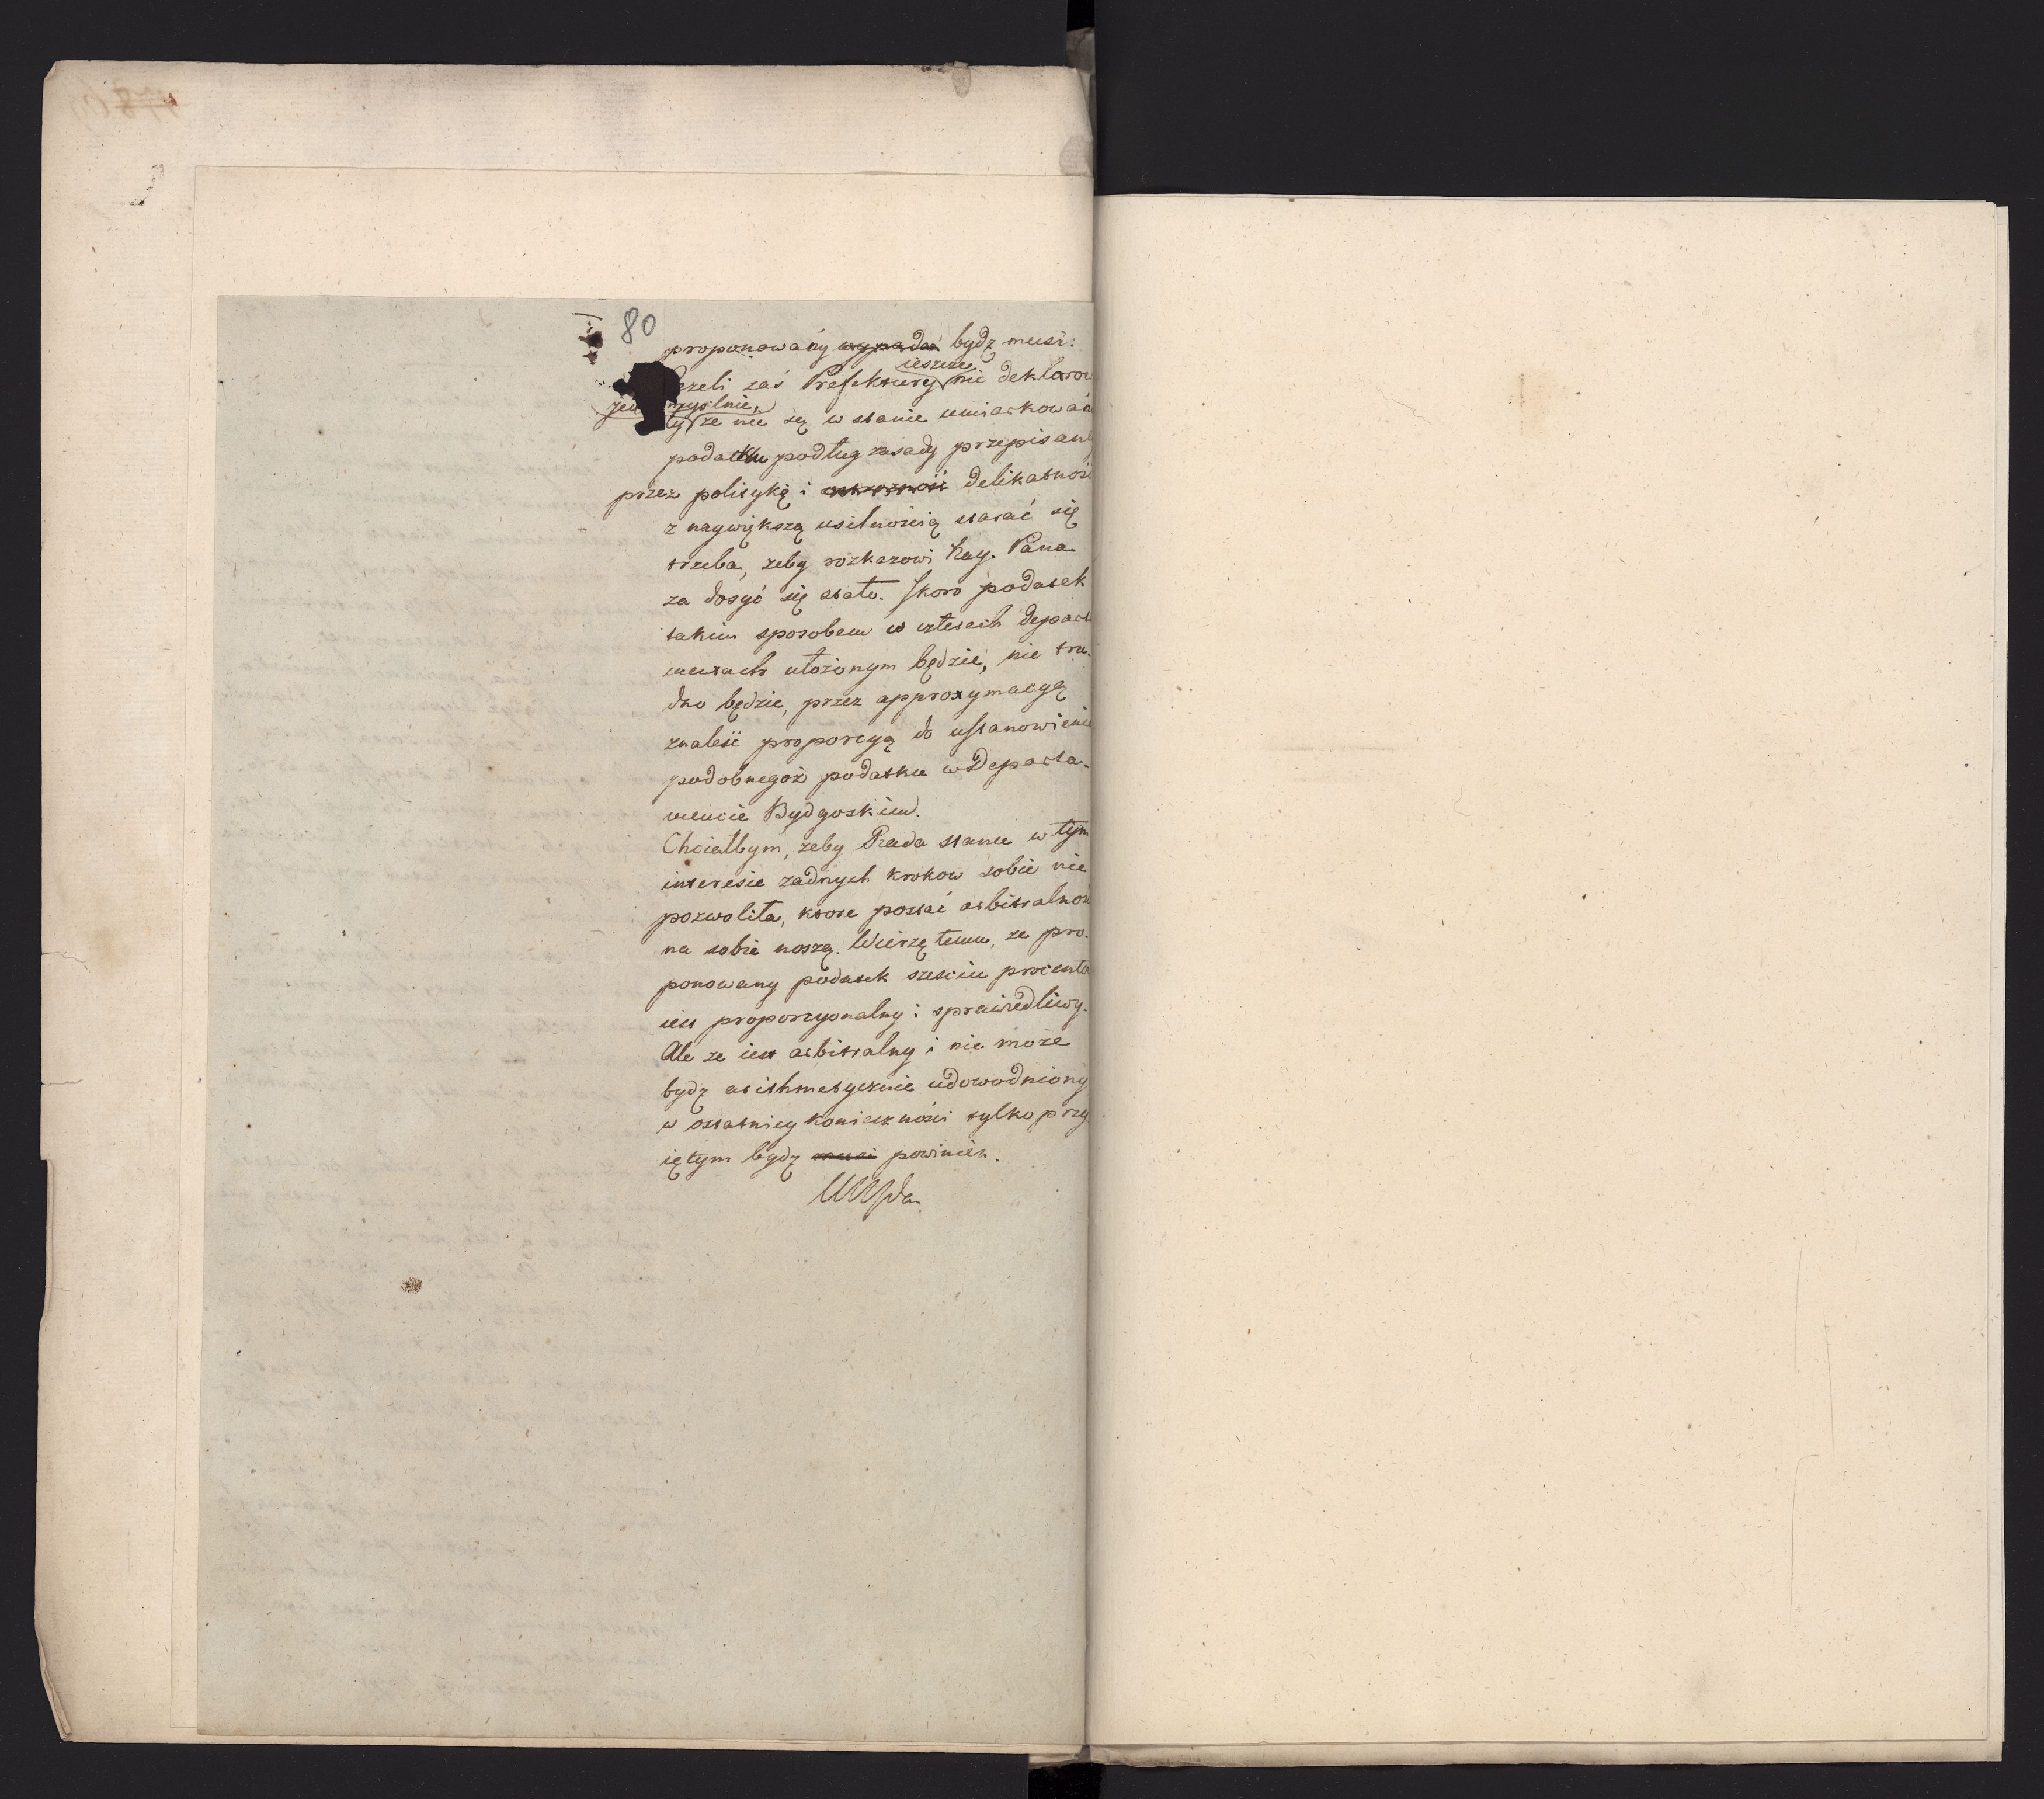 80
proponowany wypadać bydz musi:
ieszcze
Jeżeli zaś Prefektury nie deklarow
myslnie,
ły że nie są w stanie umiarkować
podatku podług zasady przepisaney
przez politykę i ostrożność delikatność
z naywiększą usilnością starać się
trzeba, żeby rozkazowi Nay. Pana
za dosyć się stało. Skoro podatek
takim sposobem w czterech depart
mentach ułożonym będzie, nie tru-
dno będzie, przez approxymacyą
znaleść proporcyą do ustanowienia
podobnegoż podatku w Departa-
mencie Bydgoskim.
Chciałbym, żeby Rada stanu w tym
interesie żadnych krokow sobie nie
pozwoliła, ktore postać arbitralnośc
na sobie noszą. Wierzę temu, że pro-
ponowany podatek sześciu procento
iest proporcyonalny i sprawiedliwy.
Ale że iest arbitralny i nie może
bydz arithmetycznie udowodniony
w ostatniey konieczności tylko przy
iętym bydz musi powinien.